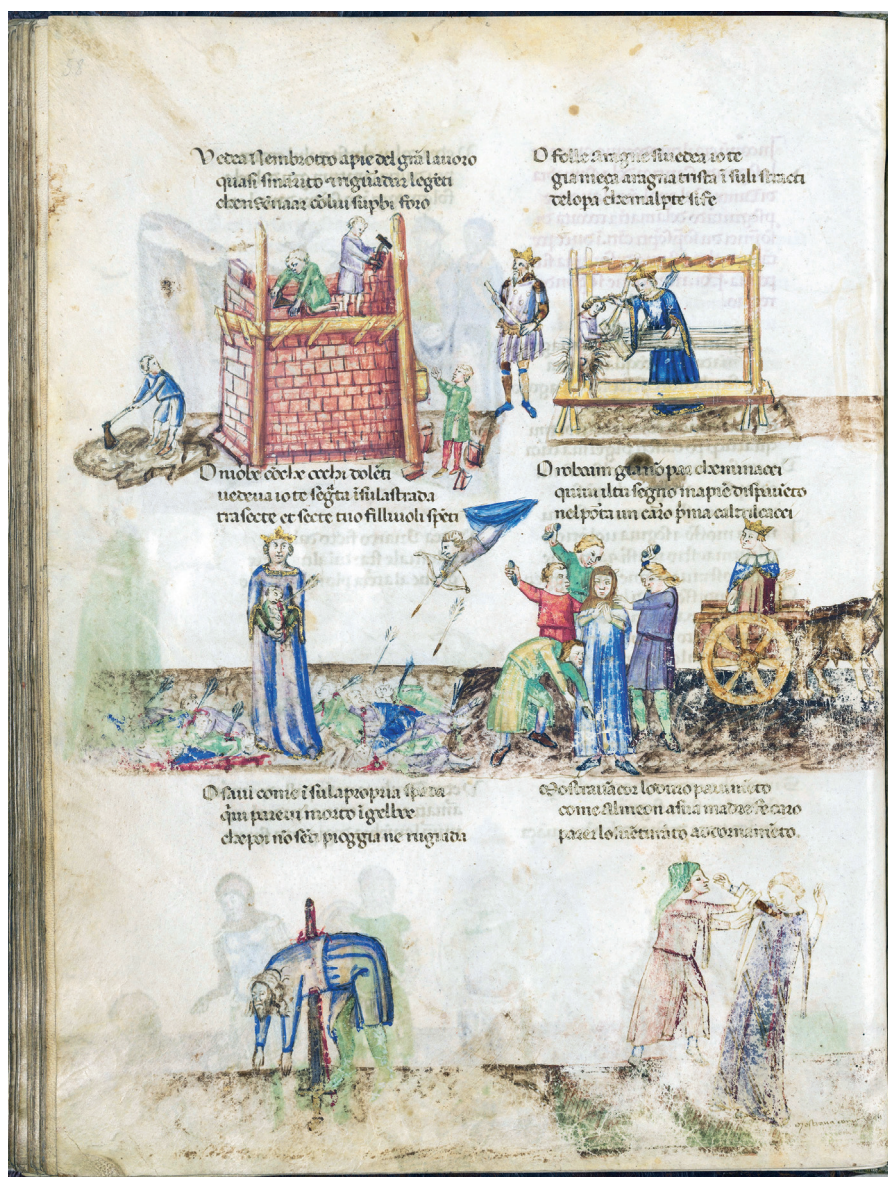 58
Vedea Nembrotto apie del grã lauoro
quasi smarito & riguardar le gẽti
chen sẽnaar cõ lui supbi foro
O folle Aragne si uedea io te
gia meça aragna trista ĩ suli stracci
de lopa che mal p te si fe
O niobe cõ che occhi dolẽti
uedeua io te segta ĩ sula strada
tra secte et secte tuo filliuoli spẽti
O roboam gia nõ par che minacci
quiui iltu segno ma piẽ di spauẽto
nel porta un caro pma caltri lcacci
O saul come ĩ sula propria spada
qĩui pareui morto ĩ gelboe
che poi nõ sẽti pioggia ne rugiada
Mostraua cor lo duro pauimẽto
come Almeon a sua madre fe caro
parer lo suẽturato adornamẽto.
mostraua cor